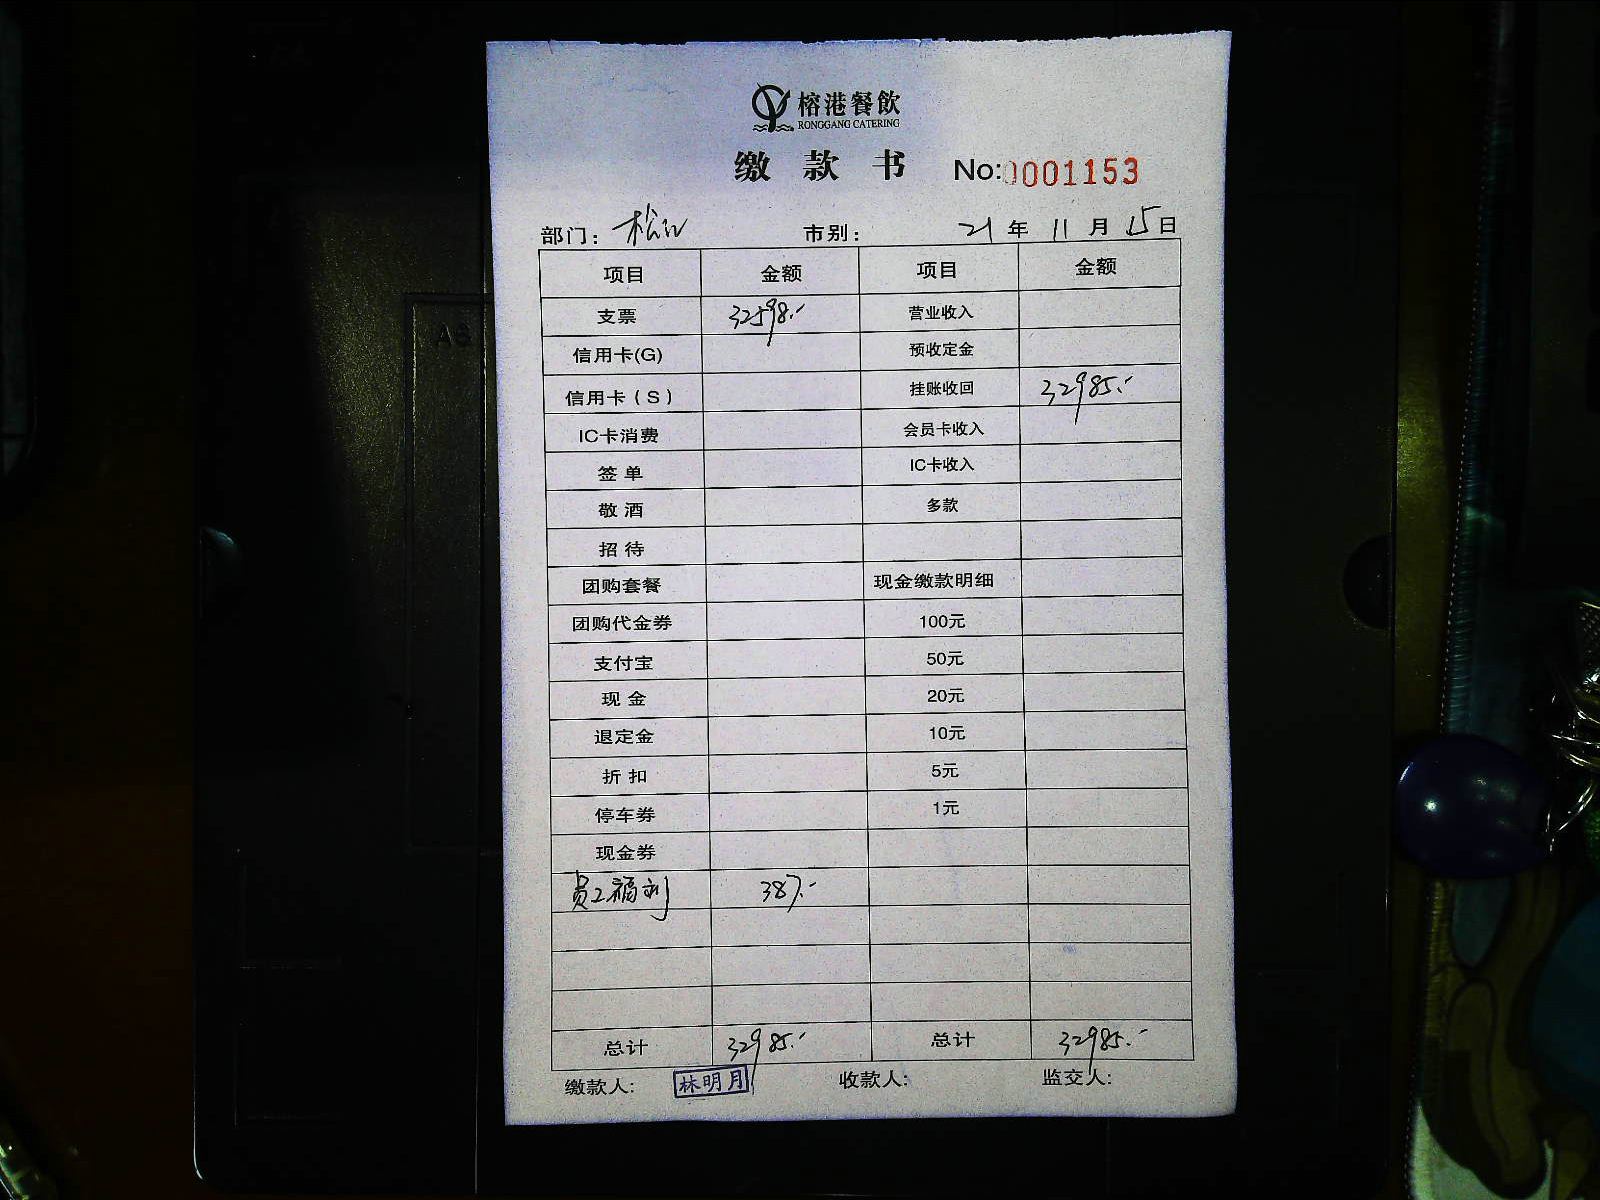 榕港餐飲
RONGGANG CATERING
缴 款 书 No:0001153
部门: 松江 市别: 21 年 11 月 15 日
项目 金额 项目 金额
支票 32598.- 营业收入
信用卡(G) 预收定金
信用卡(S) 挂账收回 32985.-
IC卡消费 会员卡收入
签 单 IC卡收入
敬 酒 多款
招 待
团购套餐 现金缴款明细
团购代金券 100元
支付宝 50元
现 金 20元
退定金 10元
折 扣 5元
停车券 1元
现金券
员工福利 387.-
总计 32985.- 总计 32985.-
缴款人: 林明月 收款人: 监交人: